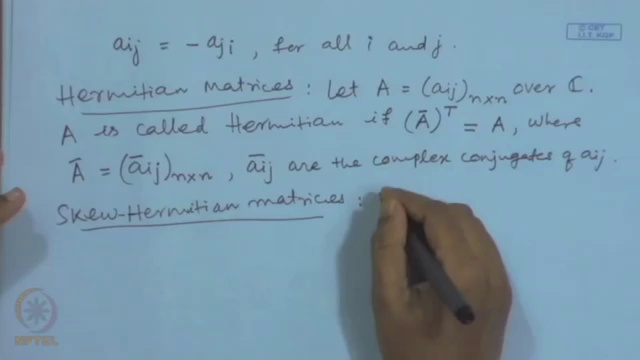 © CET
I.I.T. KGP
aij = - aji, for all i and j.
Hermitian Matrices : Let A = (aij)n×n over ℂ.
A is called Hermitian if (Ā)ᵀ = A, where
Ā = (āij)n×n, āij are the complex conjugates of aij.
Skew-Hermitian matrices :
NPTEL